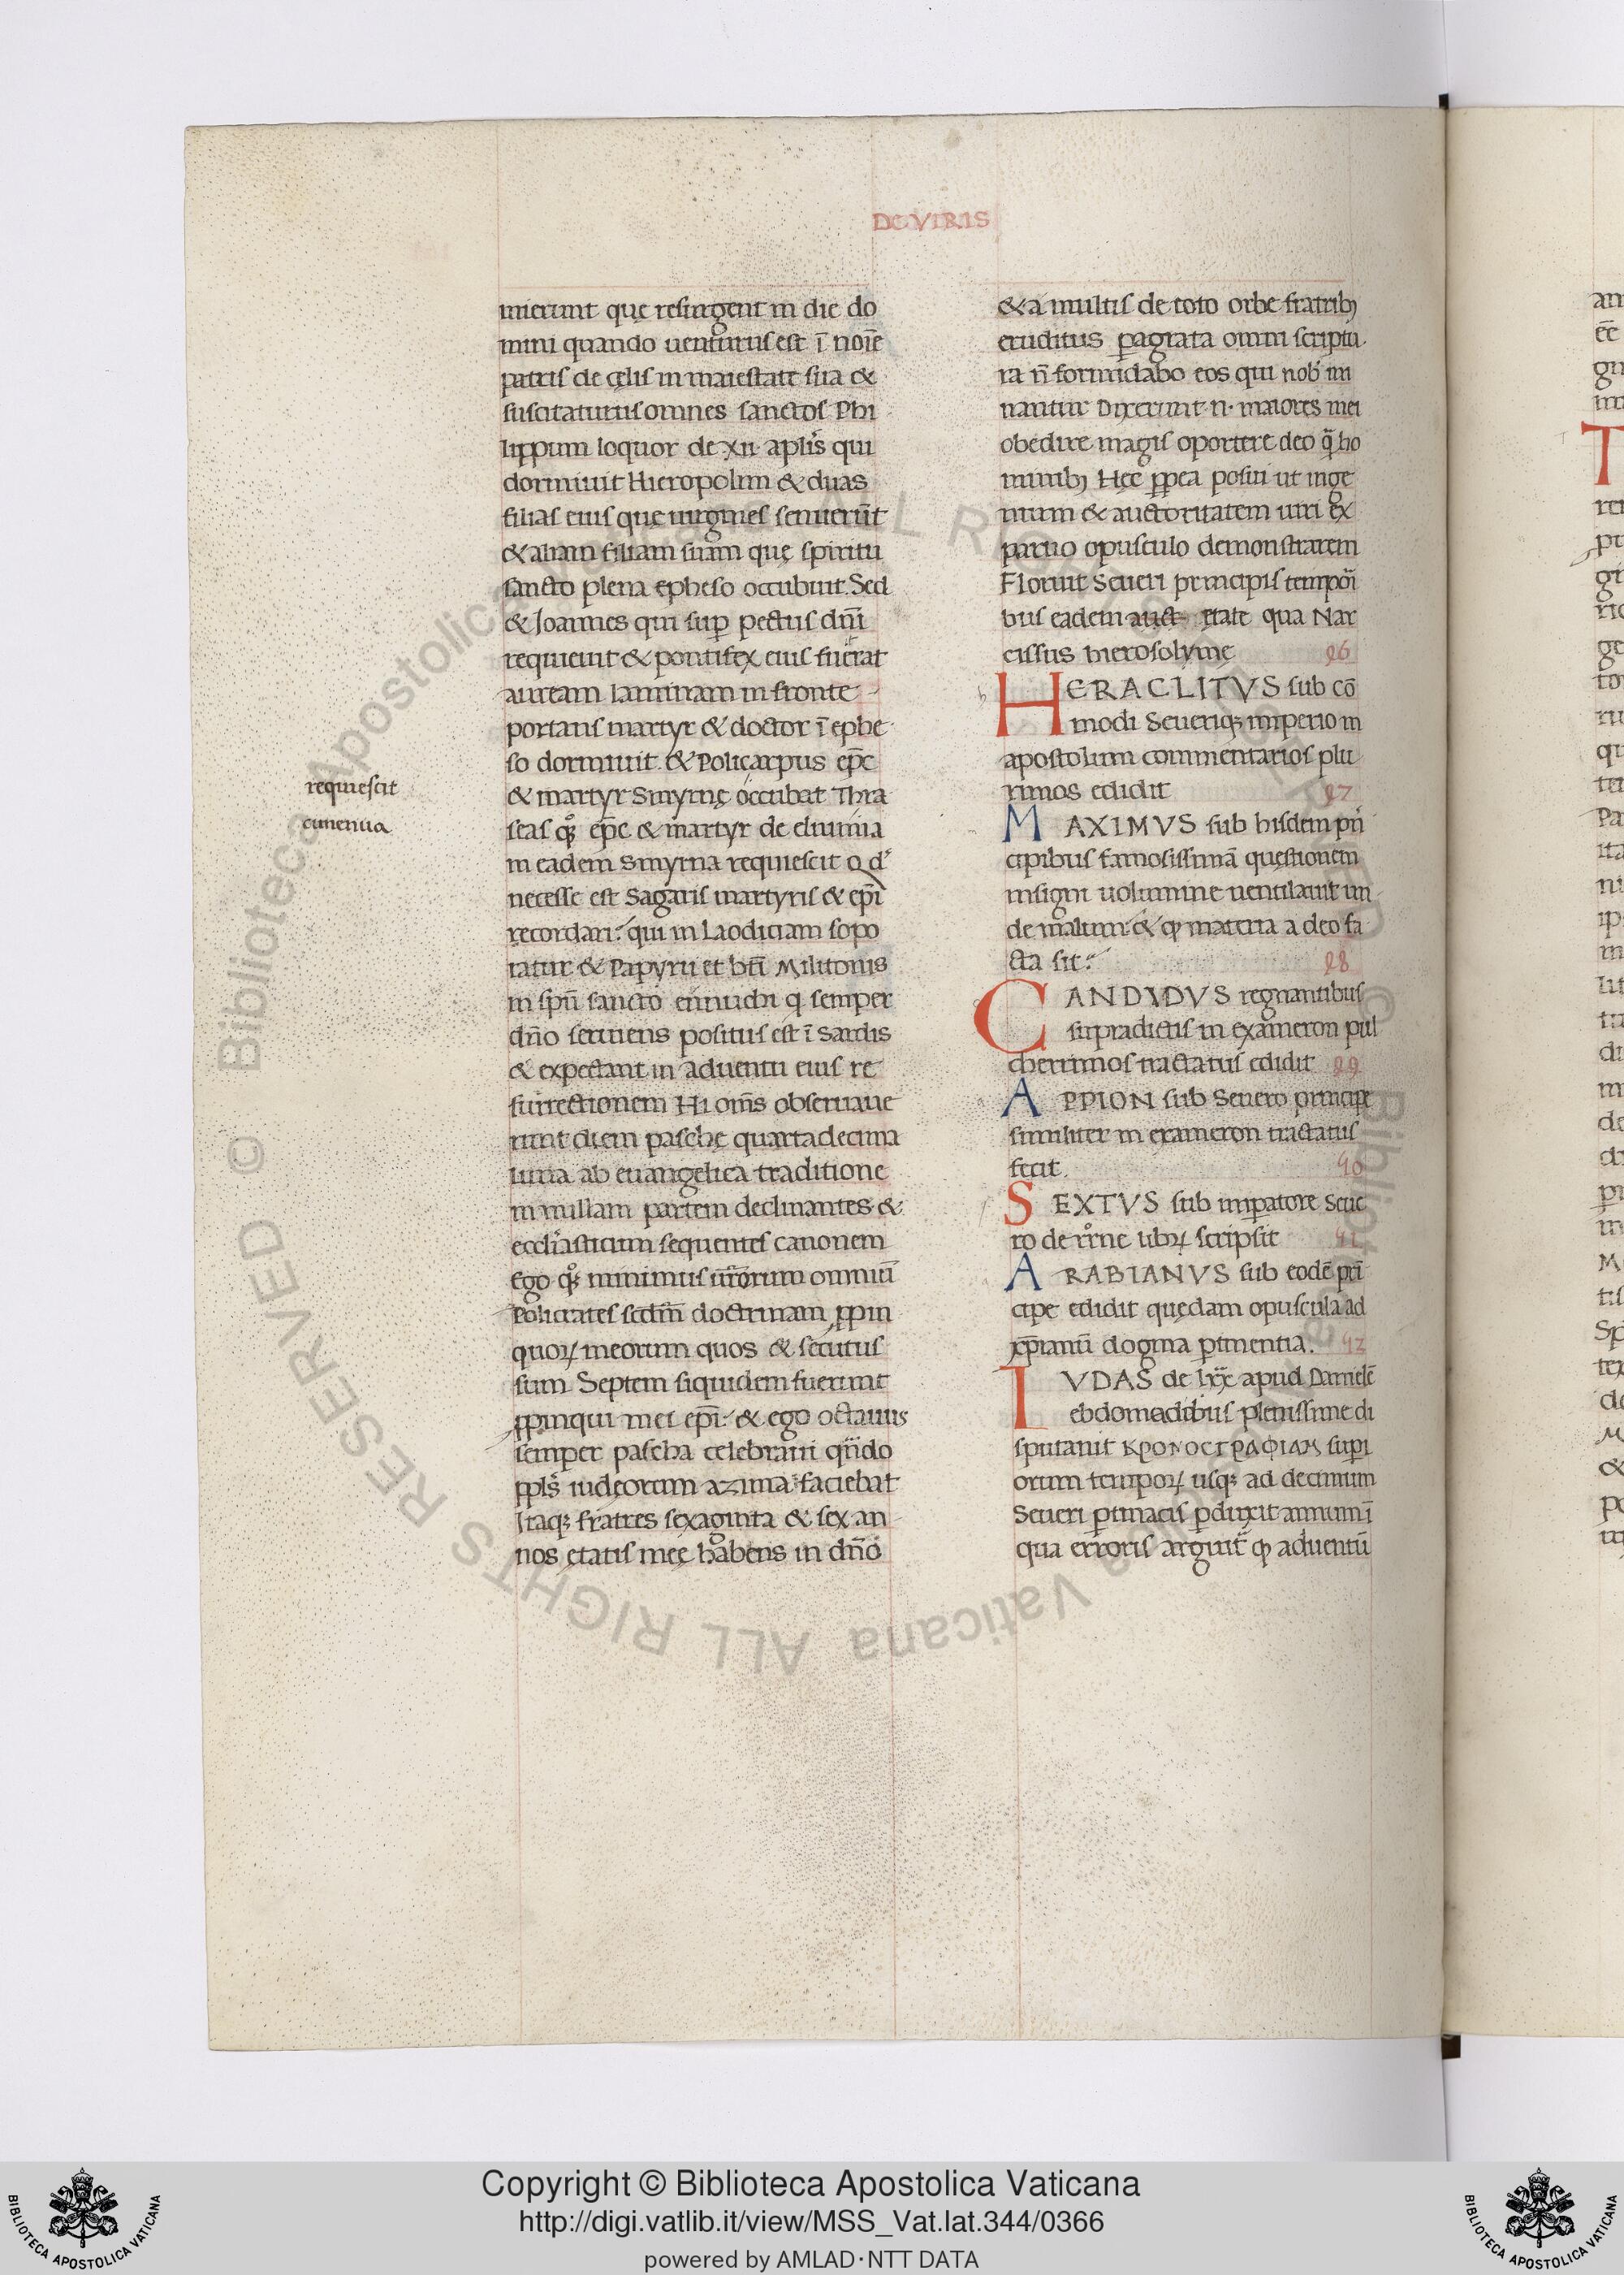 DE VIRIS
mierunt quę resurgent in die do
mini quando uenturus est ī noīe
patris de cęlis in maiestate sua &
suscitaturus omnes sanctos Phi
lippum loquor de xii aplis qui
dormiuit Hieropolim & duas
filias eius que uirgines senuerūt
& aliam filiam suam quę spiritu
sancto plena epheso occubuit. Sed
& Joannes qui suꝑ pectus dn̄i
requieuit & pontifex eius fuerat
auream laminam in fronte
portans martyr & doctor ī ephe
so dormiuit. & Policarpus ep̄c
requiescit
& martyr Smyrnę occubat Thra
eumenua
seas qͦꝫ ep̄c & martyr de elumia
in eadem smyrna requiescit Q d
necesse est Sagaris martyris & ep̄i
recordari: qui in Laodiciam sopo
ratur & Papyru et bt̄i Militonis
in spū sancto eunuchi q semper
dn̄o seruiens positus est ī Sardis
& expectant in aduentu eius re
surrectionem Hi oms̄ obseruaue
runt diem paschę quartadecima
luna ab euangelica traditione
in nullam partem declinantes &
eccl̄iasticum sequentes canonem
Ego qͦꝫ minimus ur̄orum omniū
Policrates scdm̄ doctrinam ꝓpin
quoꝝ meorum quos & secutus
sum Septem siquidem fuerunt
ꝓpinqui mei ep̄i: & ego octauus
semper pascha celebraui qn̄do
ppls̄ iudęorum azima faciebat
Itaqꝫ fratres sexaginta & sex an
nos ętatis męę habens in dn̄o
& a multis de toto orbe fratribꝫ
eruditus ꝑagrata omni scriptu
ra n̄ formidabo eos qui nob̄ mi
nantur Dixerunt .n. maiores mei
obedire magis oportere deo q̄ ho
minibꝫ Hęc ꝓpea posui ut inge
nium & auctoritatem uiri ex
paruo opusculo demonstrarem
Floruit Seueri principis tempori
bus eadem auct ętate qua Nar
cissus hierosolymę 36
HERACLITVS sub cō
modi Seueriqꝫ imperio in
apostolum commentarios plu
rimos edidit 37
MAXIMVS sub hisdem pri
cipibus famosissimā quęstionem
insigni uolumine uentilauit un
de malum: & ꝙ materia a deo fa
cta sit: 38
CANDYDVS regnantibus
supradictis in exameron pul
cherrimos tractatus edidit 39
APPION sub Seuero principe
similiter in exameron tractatus
fecit. 40
SEXTVS sub imꝑatore Seue
ro de rr̄ne libꝝ scripsit 41
ARABIANVS sub eodē pri
cipe edidit quędam opuscula ad
xp̄ianū dogma ꝑtinentia. 42
IVDAS de lxx apud Danielē
ebdomadibus plenissime di
sputauit ΚΡΟΝΟΓΡΑΦΙΑΜ supi
orum tempoꝝ usqꝫ ad decimum
Seueri ꝑtinacis ꝑduxit annum ī
qua erroris arguit̄ ꝙ aduentū
Copyright © Biblioteca Apostolica Vaticana
http://digi.vatlib.it/view/MSS_Vat.lat.344/0366
powered by AMLAD·NTT DATA